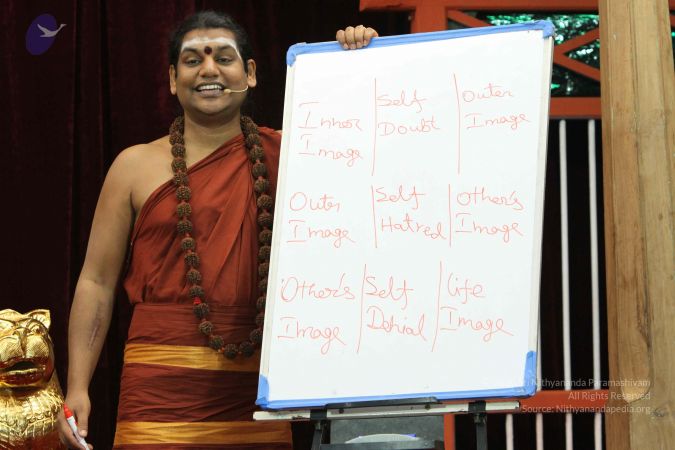 Inner Image | Self Doubt | Outer Image
Outer Image | Self Hatred | Other's Image
Other's Image | Self Denial | Life Image
Nithyananda Paramashivam
All Rights Reserved
Source: Nithyanandapedia.org